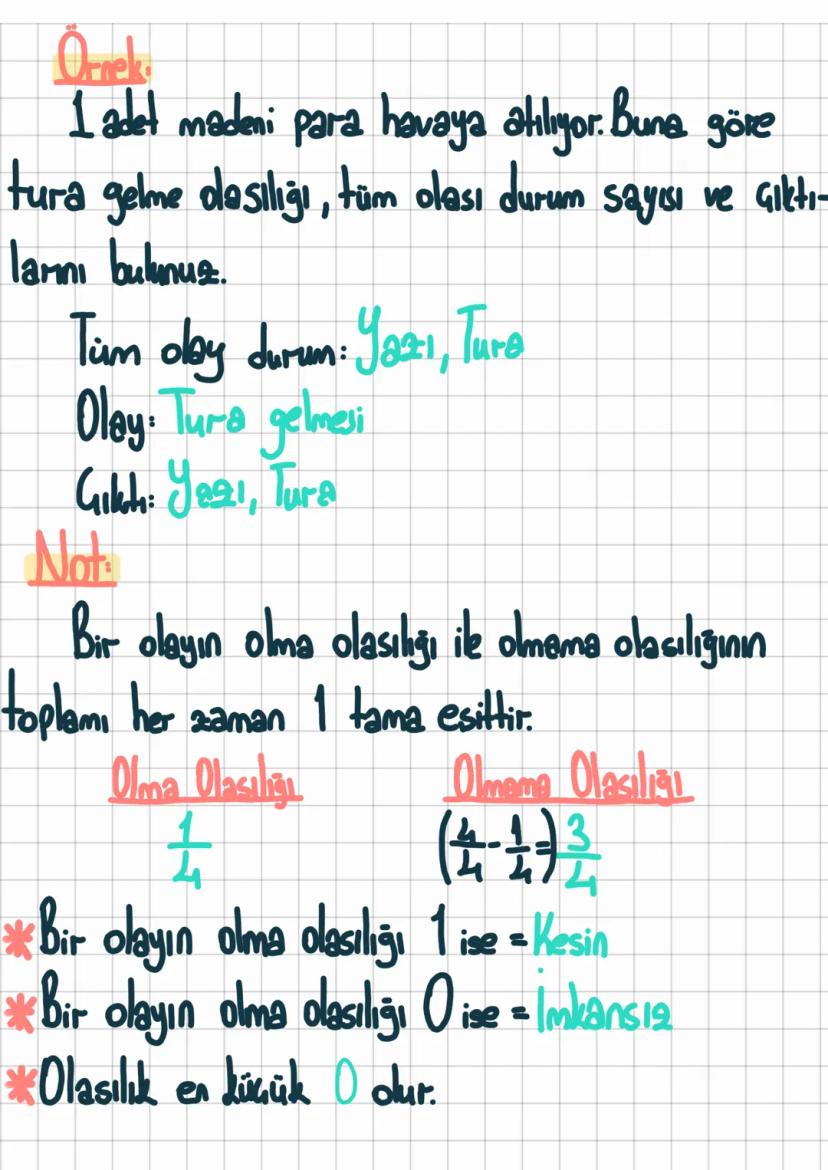 Örnek:
1 adet madeni para havaya atılıyor. Buna göre
tura gelme olasılığı, tüm olası durum sayısı ve çıktı-
larını bulunuz.
Tüm olay durum: Yazı, Tura
Olay: Tura gelmesi
Çıktı: Yazı, Tura
Not:
Bir olayın olma olasılığı ile olmama olasılığının
toplamı her zaman 1 tama esittir.
Olma Olasılığı Olmama Olasılığı
1/4 (4/4 - 1/4 =) 3/4
* Bir olayın olma olasılığı 1 ise = Kesin
* Bir olayın olma olasılığı 0 ise = İmkansız
* Olasılık en küçük 0 olur.